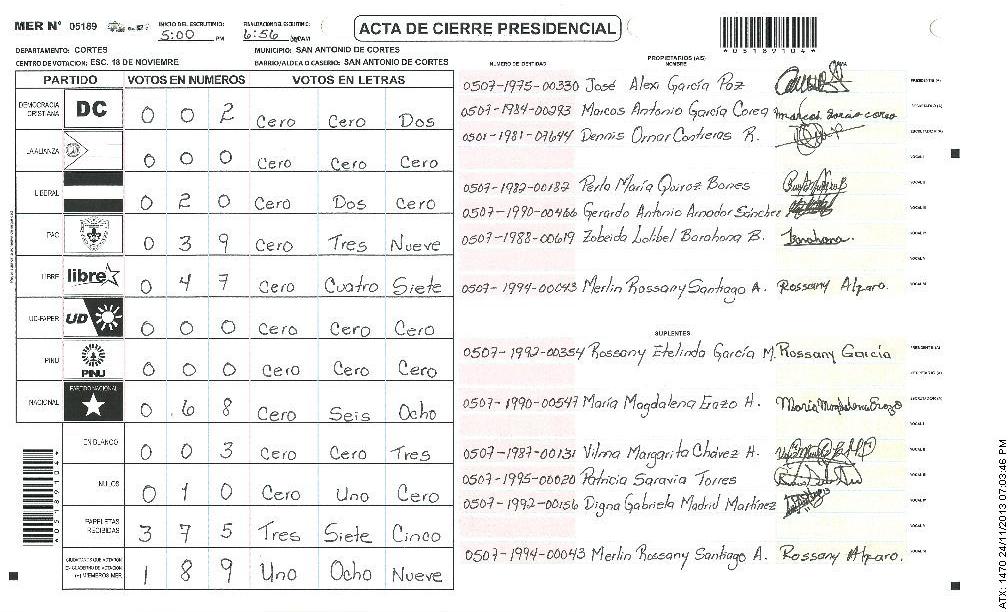 MER N° 05189 INICIO DEL ESCRUTINIO: 5:00 PM FINALIZACION DEL ESCRUTINIO: 6:56 ACTA DE CIERRE PRESIDENCIAL
*05189104*
DEPARTAMENTO: CORTES MUNICIPIO: SAN ANTONIO DE CORTES
CENTRO DE VOTACION: ESC. 18 DE NOVIEMRE BARRIO/ALDEA O CASERIO: SAN ANTONIO DE CORTES
PARTIDO VOTOS EN NUMEROS VOTOS EN LETRAS
DEMOCRACIA CRISTIANA DC 0 0 2 Cero Cero Dos
LA ALIANZA 0 0 0 Cero Cero Cero
LIBERAL 0 2 0 Cero Dos Cero
PAC 0 3 9 Cero Tres Nueve
LIBRE libre 0 4 7 Cero Cuatro Siete
UD-FAPER UD 0 0 0 Cero Cero Cero
PINU PINU 0 0 0 Cero Cero Cero
NACIONAL PARTIDO NACIONAL 0 6 8 Cero Seis Ocho
EN BLANCO 0 0 3 Cero Cero Tres
NULOS 0 1 0 Cero Uno Cero
PAPELETAS RECIBIDAS 3 7 5 Tres Siete Cinco
CIUDADANOS QUE VOTARON EN CUADERNO DE VOTACION (+) MIEMBROS MER 1 8 9 Uno Ocho Nueve
*05189104*
NUMERO DE IDENTIDAD PROPIETARIOS (AS) NOMBRE FIRMA
0507-1975-00330 José Alexi García Paz PRESIDENTE (A)
0507-1984-00293 Marcos Antonio García Corea marcos garcia corea SECRETARIO (A)
0501-1981-07644 Dennis Omar Contreras R. ESCRUTADOR (A)
VOCAL I
0507-1982-00182 Perla María Quiroz Bones VOCAL II
0507-1990-00466 Gerardo Antonio Amador Sánchez VOCAL III
0507-1988-00619 Zobeida Lolibel Barahona B. Barahona. VOCAL IV
VOCAL V
0507-1994-00043 Merlin Rossany Santiago A. Rossany Alparo. VOCAL VI
SUPLENTES
0507-1992-00354 Rossany Etelinda García M. Rossany García PRESIDENTE (A)
SECRETARIO (A)
0507-1990-00547 María Magdalena Erazo H. María Magdalena Erazo ESCRUTADOR (A)
VOCAL I
0507-1987-00131 Vilma Margarita Chávez H. VOCAL II
0507-1995-00020 Patricia Saravia Torres VOCAL III
0507-1992-00156 Digna Gabriela Madrid Martínez VOCAL IV
VOCAL V
0507-1994-00043 Merlin Rossany Santiago A. Rossany Alparo. VOCAL VI
ATX: 1470 24/11/2013 07:03:46 PM